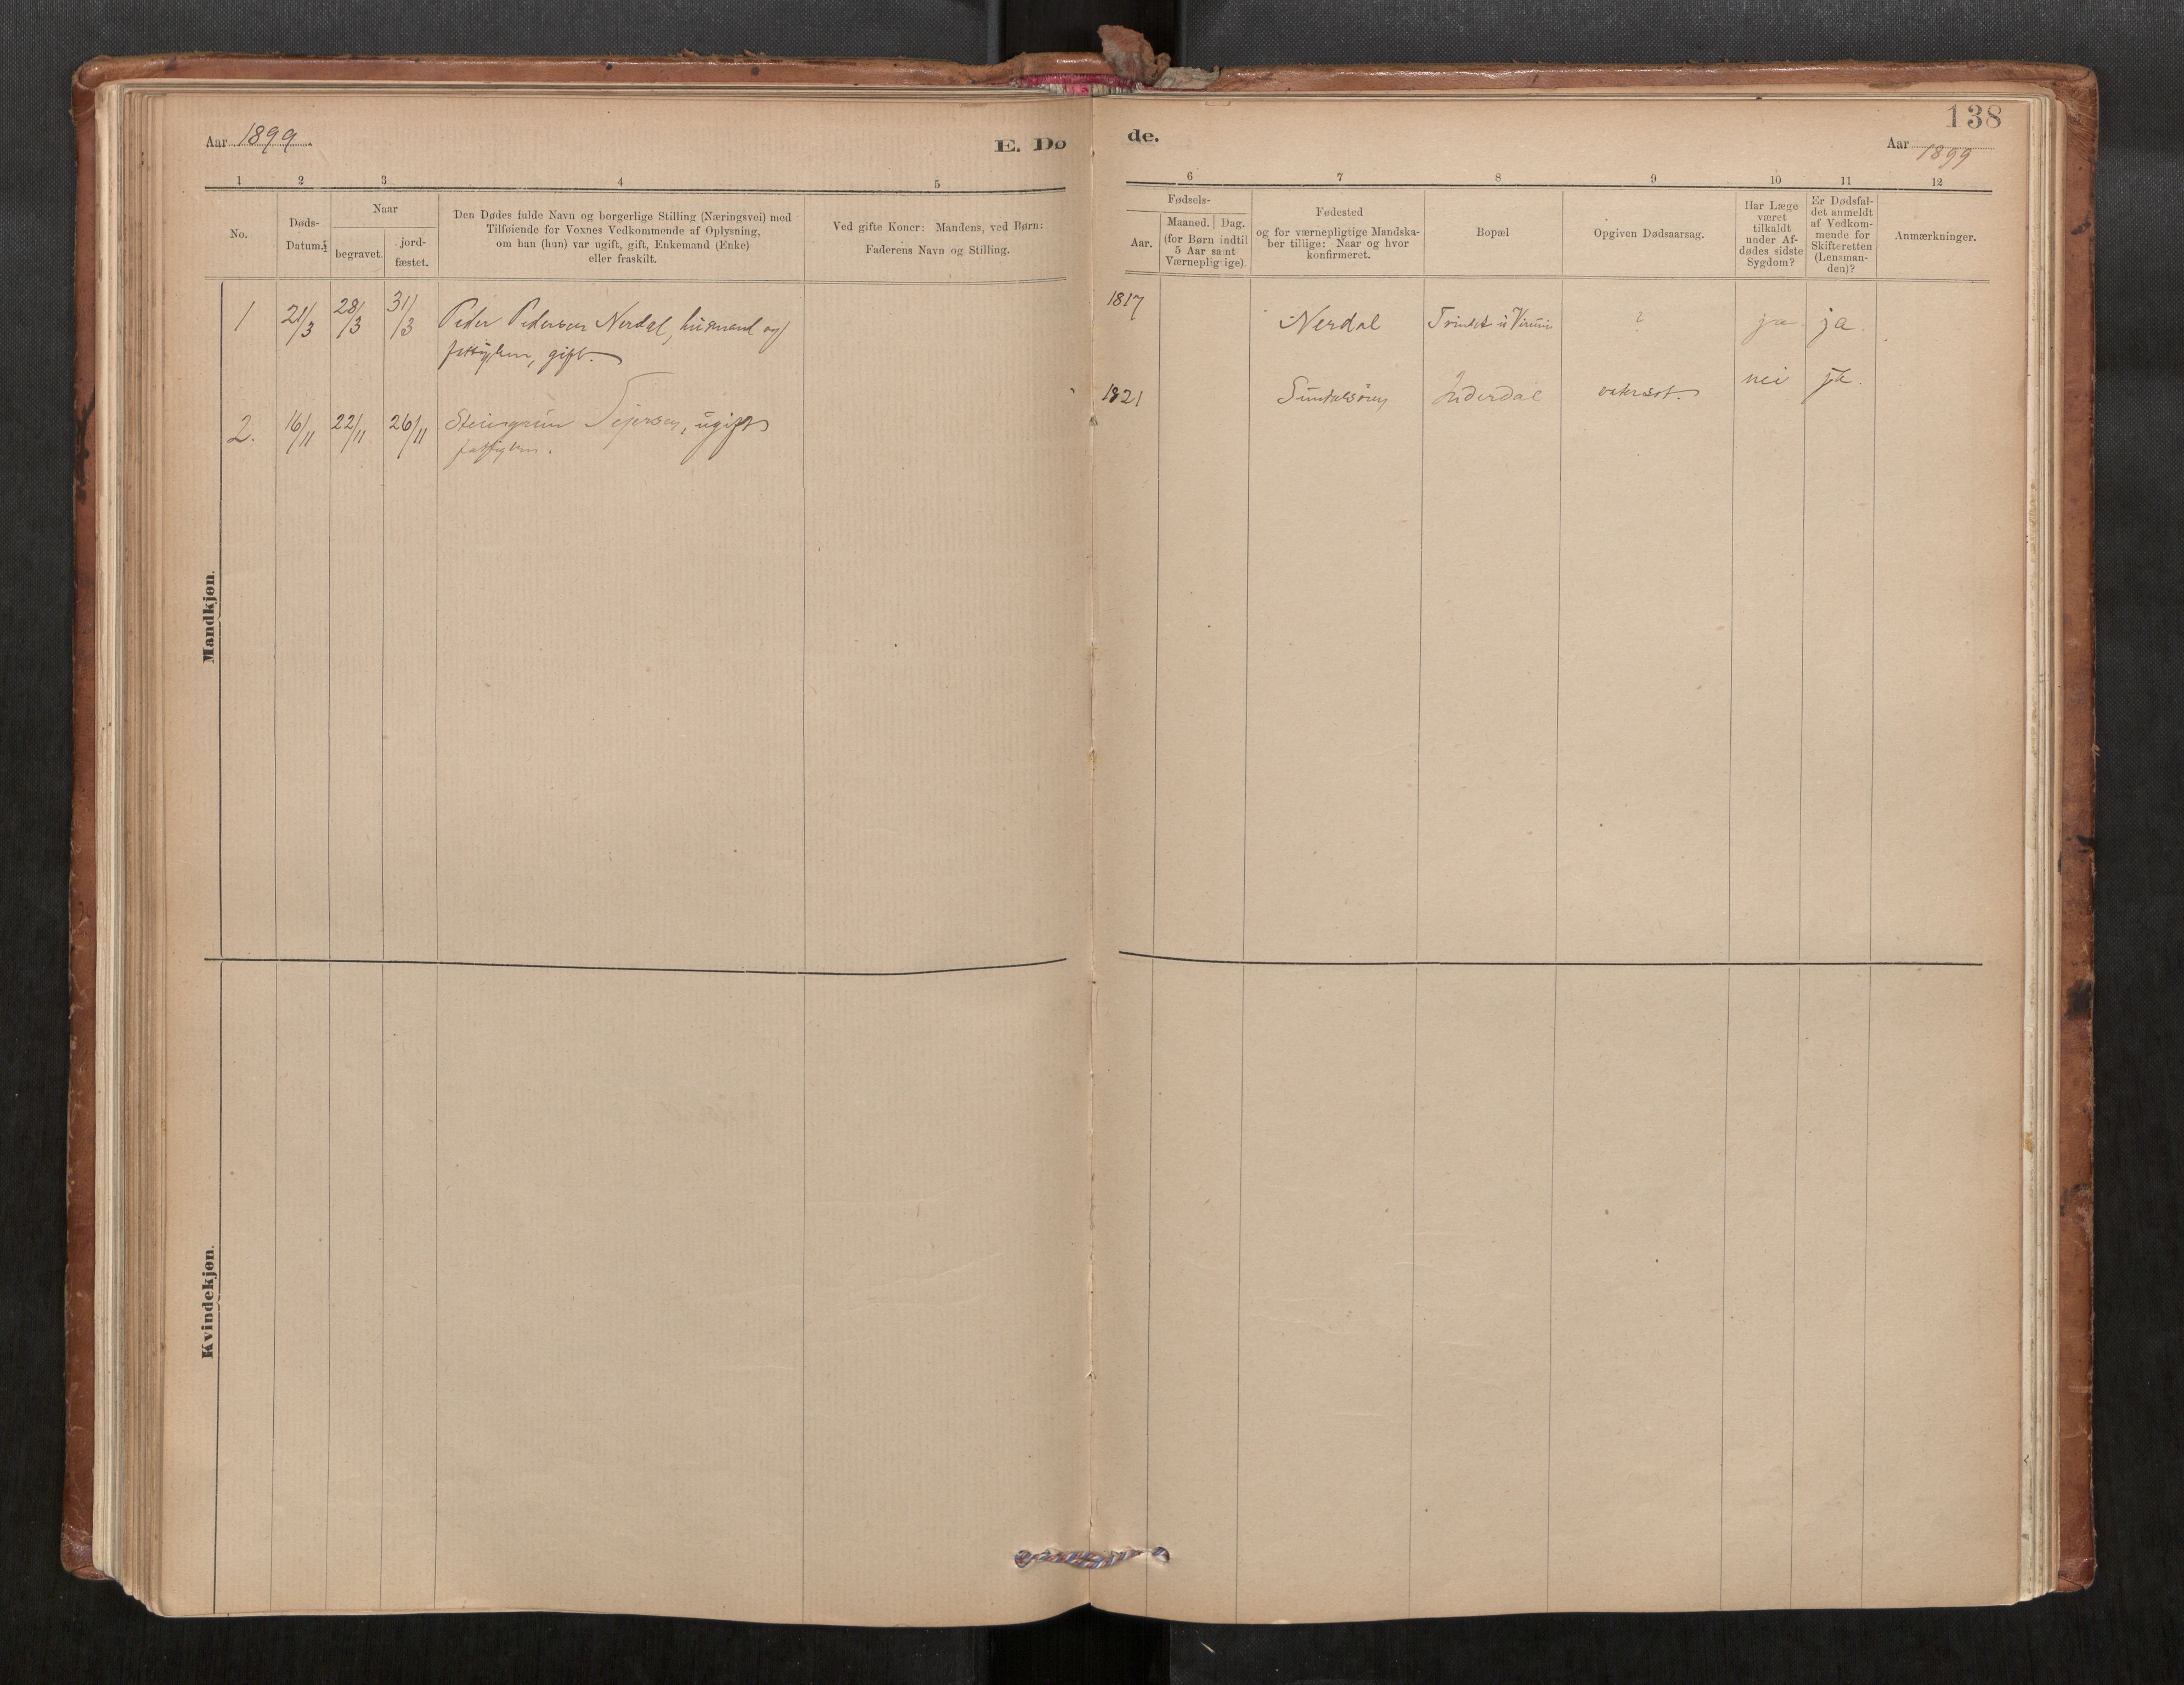 Aar 1899
E. Dø
1 2 3 4 5
No.
Døds-
Datum.
Naar
begravet.
jord-
fæstet.
Den Dødes fulde Navn og borgerlige Stilling (Næringsvei) med
Tilføiende for Voxnes Vedkommende af Oplysning,
om han (hun) var ugift, gift, Enkemand (Enke)
eller fraskilt.
Ved gifte Koner: Mandens, ved Børn:
Faderens Navn og Stilling.
Mandkjøn.
1 21/3 28/3 31/3 Peder Pedersen Nerdal, husmand og
fattiglem, gift.
2. 16/11 22/11 26/11 Steingrim, ugift
fattiglem.
Kvindekjøn.
138
de.
Aar 1899
6 7 8 9 10 11 12
Fødsels-
Aar.
Maaned. Dag.
(for Børn indtil
5 Aar samt
Værnepligtige).
Fødested
og for værnepligtige Mandska-
ber tillige: Naar og hvor
konfirmeret.
Bopæl
Opgiven Dødsaarsag.
Har Læge
været
tilkaldt
under Af-
dødes sidste
Sygdom?
Er Dødsfal-
det anmeldt
af Vedkom-
mende for
Skifteretten
(Lensman-
den)?
Anmærkninger.
1817 Nerdal ? ja ja.
1821 Sundalsøren Inderdal nei ja.